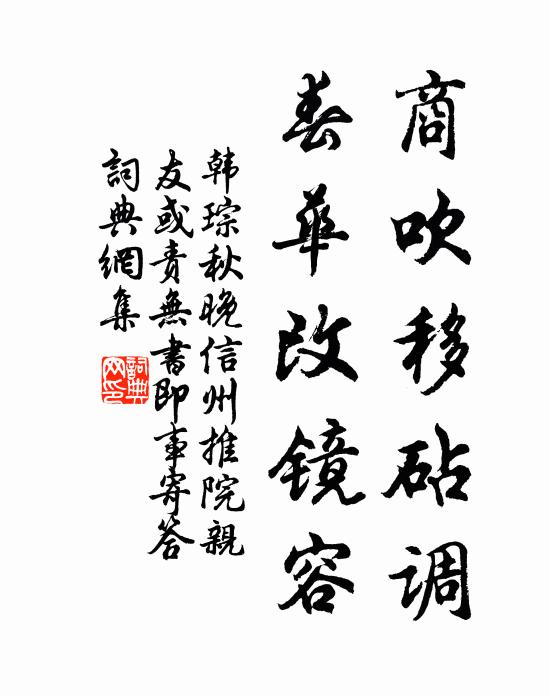 商吹移砧调
春华改镜容
韩琮秋晚信州推院親
友或责無書即事寄答
詞典網集
詞典网印